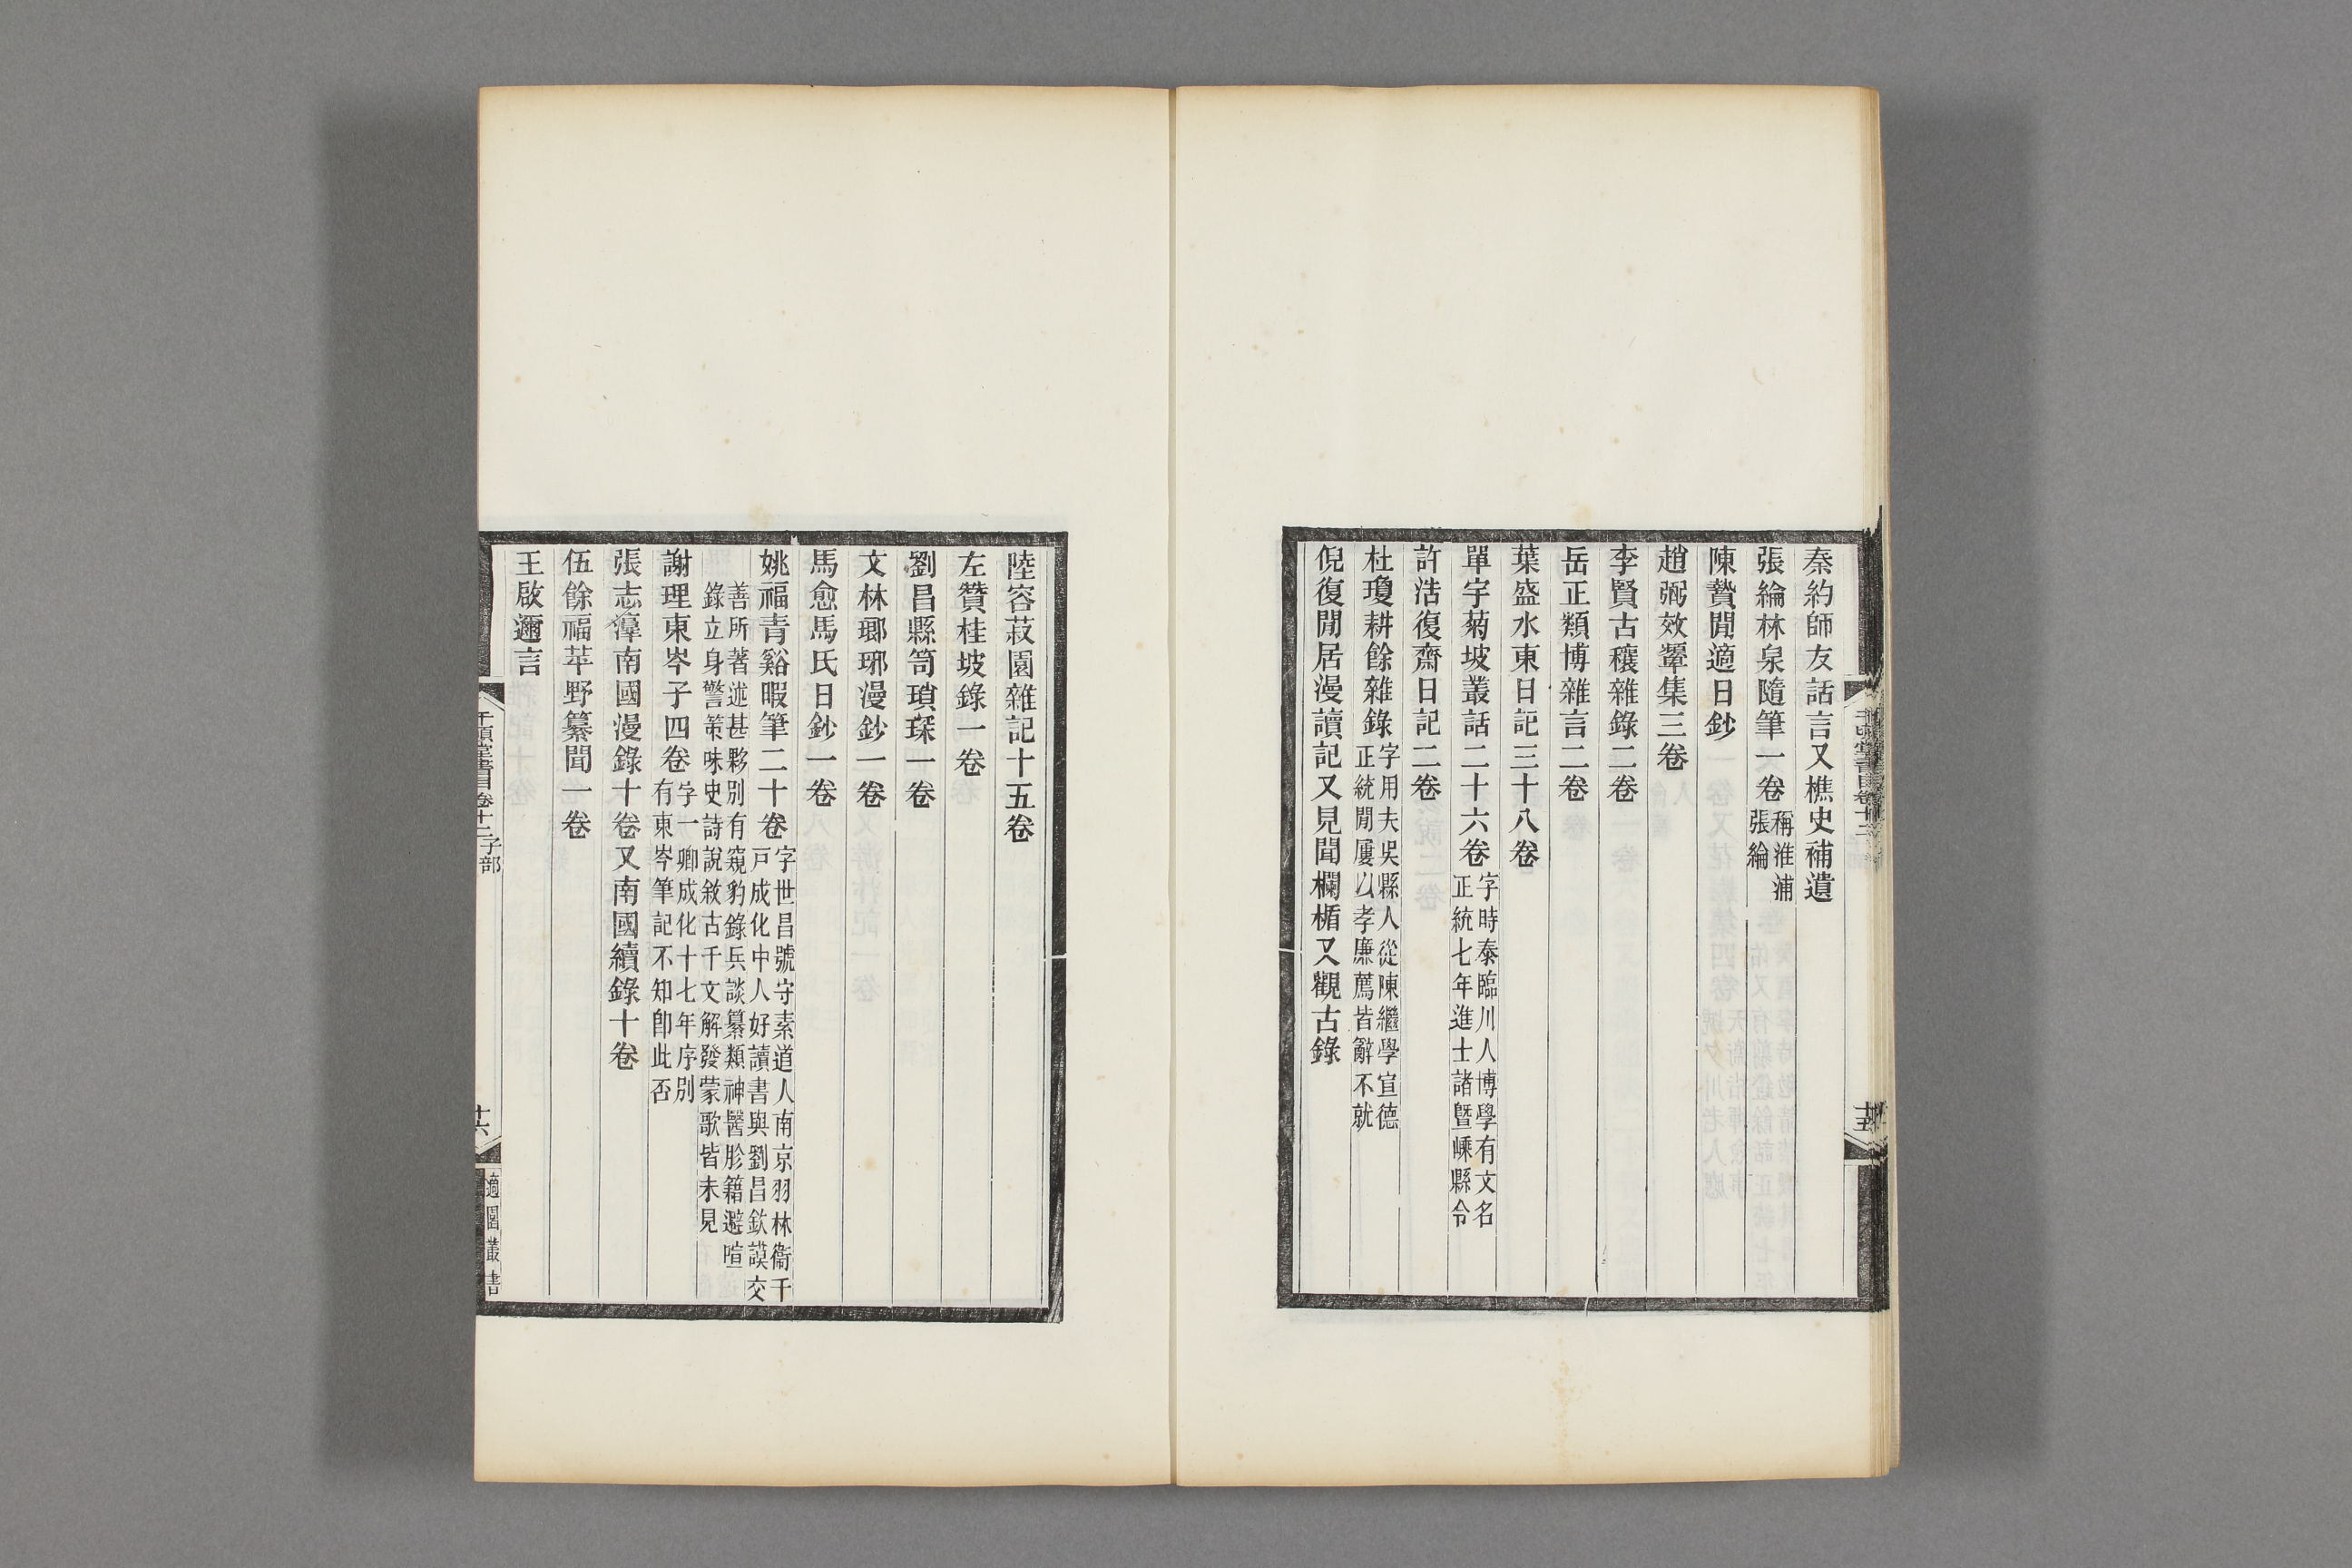 秦約師友話言又樵史補遺
張綸林泉隨筆一卷稱淮浦
張綸
陳贄閒適日鈔
趙弼效顰集三卷
李賢古穰雜錄二卷
岳正類博雜言二卷
葉盛水東日記三十八卷
單宇菊坡叢話二十六卷字時泰臨川人博學有文名
正統七年進士諸暨嵊縣令
許浩復齋日記二卷
杜瓊耕餘雜錄字用夫吳縣人從陳繼學宣德
正統閒屢以孝廉薦皆辭不就
倪復閒居漫讀記又見聞欄楯又觀古錄
十五
陸容菽園雜記十五卷
左贊桂坡錄一卷
劉昌縣笥瑣琛一卷
文林瑯琊漫鈔一卷
馬愈馬氏日鈔一卷
姚福青谿暇筆二十卷字世昌號守素道人南京羽林衞千
戸成化中人好讀書與劉昌欽謨交
善所著述甚夥別有窺豹錄兵談纂類神醫胗籍避暄
錄立身警策咏史詩說敘古千文解發蒙歌皆未見
謝理東岑子四卷字一卿成化十七年序別
有東岑筆記不知卽此否
張志淳南國漫錄十卷又南國續錄十卷
伍餘福苹野纂聞一卷
王啟邇言
千頃堂書目卷十二子部
十六
適園叢書